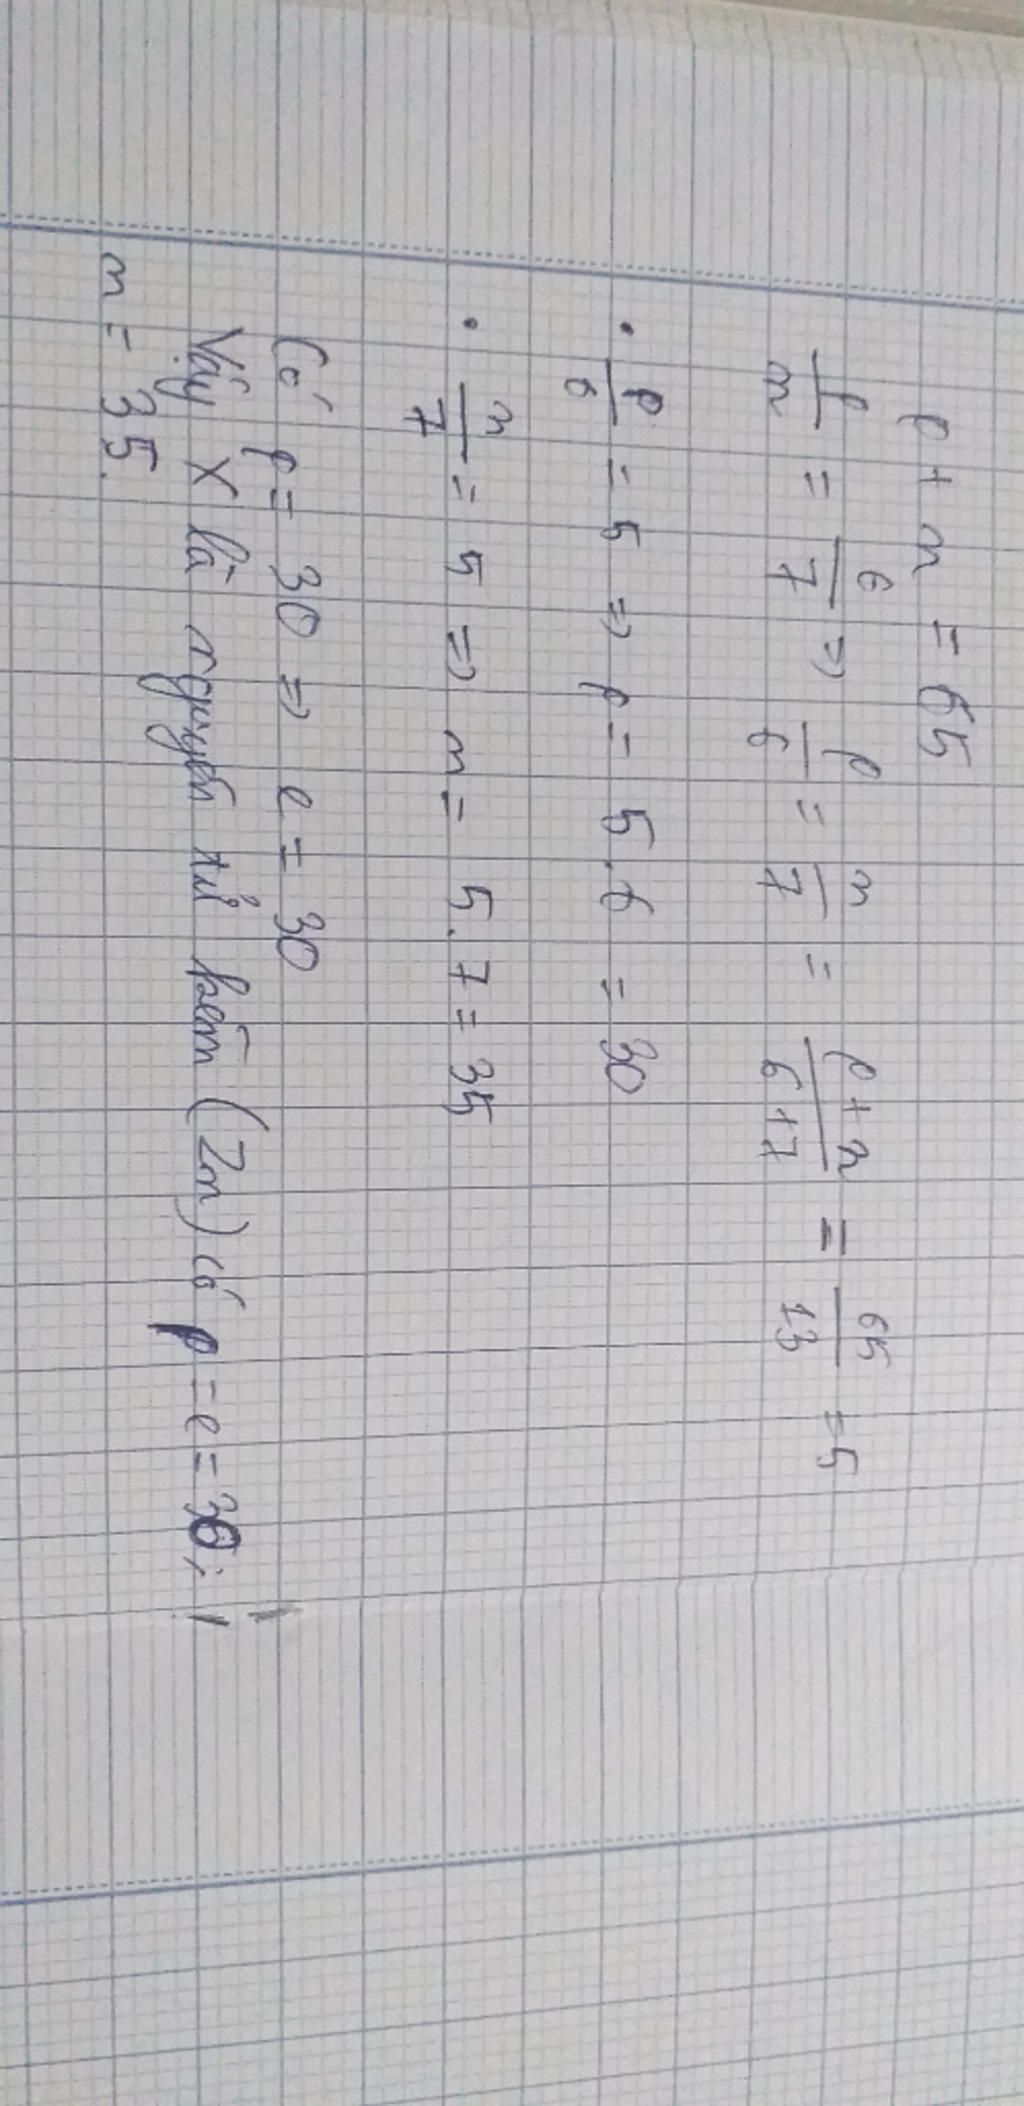 p + n = 65
p/n = 6/7 => p/6 = n/7 = p+n/6+7 = 65/13 = 5
• p/6 = 5 => p = 5.6 = 30
• n/7 = 5 => n = 5.7 = 35
Có p = 30 => e = 30
Vậy X là nguyên tử kẽm (Zn) có p = e = 30;
n = 35.